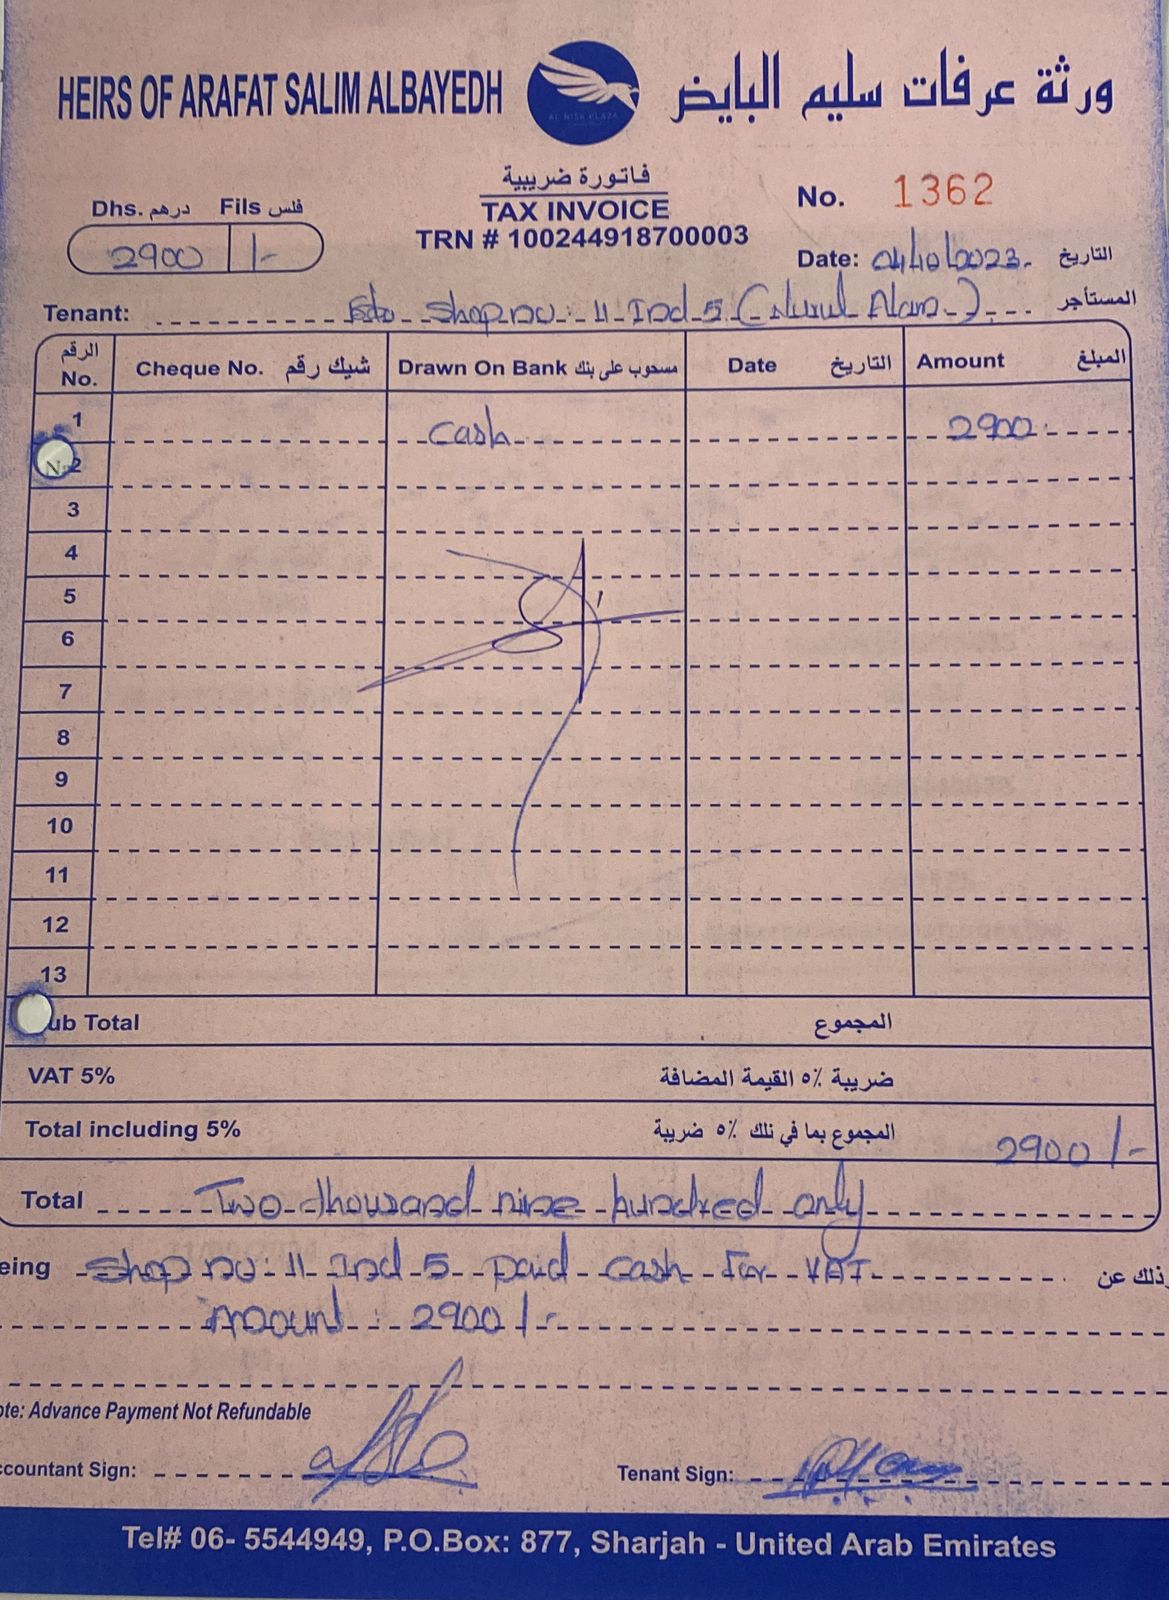 HEIRS OF ARAFAT SALIM ALBAYEDH
ورثة عرفات سليم البايض
AL NISR PLAZA
فاتورة ضريبية
TAX INVOICE
TRN # 100244918700003
No. 1362
Dhs. درهم Fils فلس
2900 /-
Date: 04/10/2023. التاريخ
Tenant: Shop no: 11 Ind 5 (Nurul Alam) المستأجر
الرقم No. Cheque No. شيك رقم Drawn On Bank مسحوب على بنك Date التاريخ Amount المبلغ
1 Cash 2900
2
3
4
5
6
7
8
9
10
11
12
13
ub Total المجموع
VAT 5% ضريبة ٥٪ القيمة المضافة
Total including 5% المجموع بما في تلك ٥٪ ضريبة 2900/-
Total Two thousand nine hundred only
eing Shop no: 11 Ind 5 paid cash for VAT وذلك عن
Amount: 2900/-
ote: Advance Payment Not Refundable
ccountant Sign: Tenant Sign:
Tel# 06- 5544949, P.O.Box: 877, Sharjah - United Arab Emirates